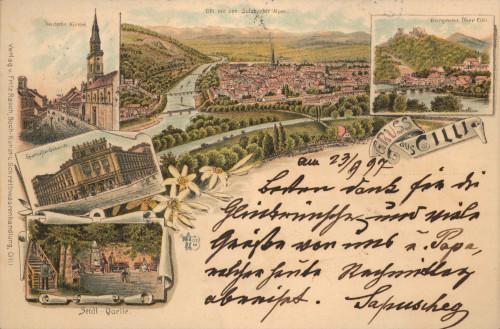 Cilli mit den Sulzbacher Alpen.
Deutsche Kirche
Burgruine Ober Cilli
Sparcasse-Gebäude
GRUSS
aus
CILLI
Seidl-Quelle.
Verlag v. Fritz Rasch, Buch-, Kunst-, u. Schreibwaarenhandlung, Cilli
am 23/9 97
Besten Dank für die
Glückwünsche und viele
Grüße von uns u. Papa,
welcher heute Nachmittag
abreist.